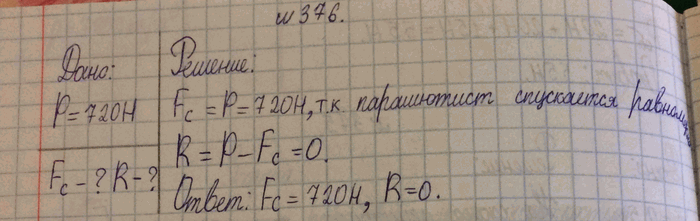 № 376.
Дано:
P=720Н
Fc-? R-?
Решение:
Fc=P=720Н, т.к парашютист спускается равномерно
R=P-Fc=0.
Ответ: Fc=720Н, R=0.